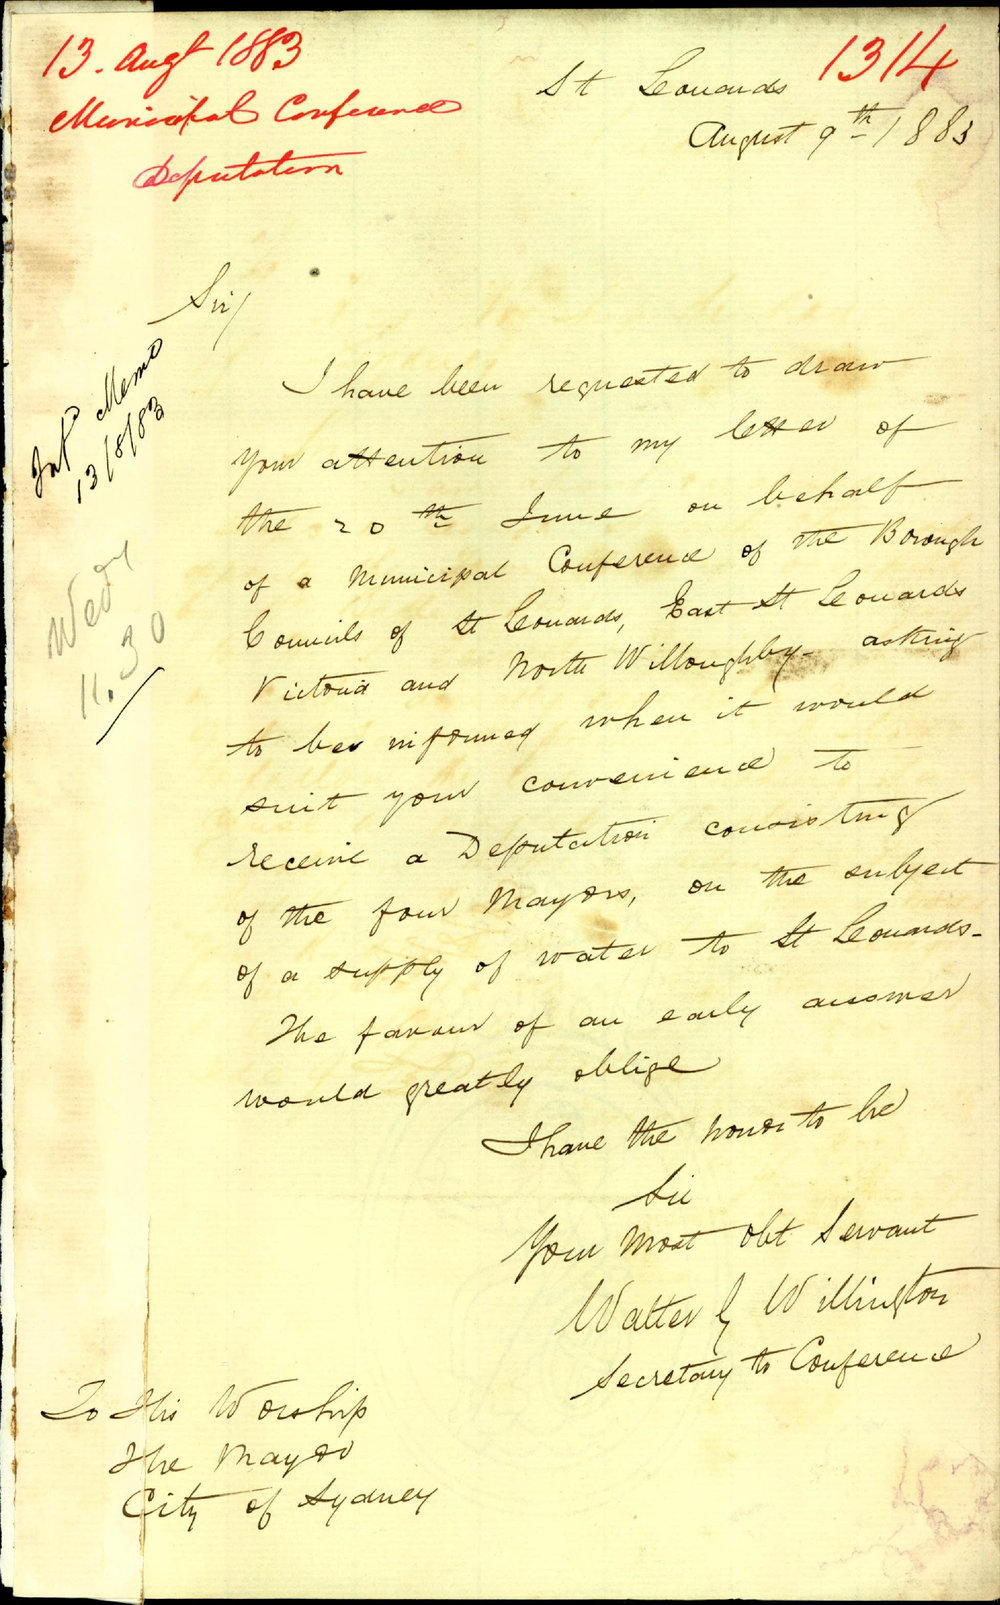 13. Augt 1883
Municipal Conference
Deputation
1314
St Leonards
August 9th 1883
Sir/
Memo
13/8/83
Wedy
11.30
I have been requested to draw
your attention to my letter of
the 20th June on behalf
of a Municipal Conference of the Borough
Councils of St Leonards, East St Leonards
Victoria and North Willoughby - asking
to be informed when it would
suit your convenience to
receive a Deputation consisting
of the four Mayors, on the subject
of a supply of water to St Leonards -
The favour of an early answer
would greatly oblige
I have the honor to be
Sir
Your most obt Servant
Walter G Willington
Secretary to Conference
To His Worship
The Mayor
City of Sydney